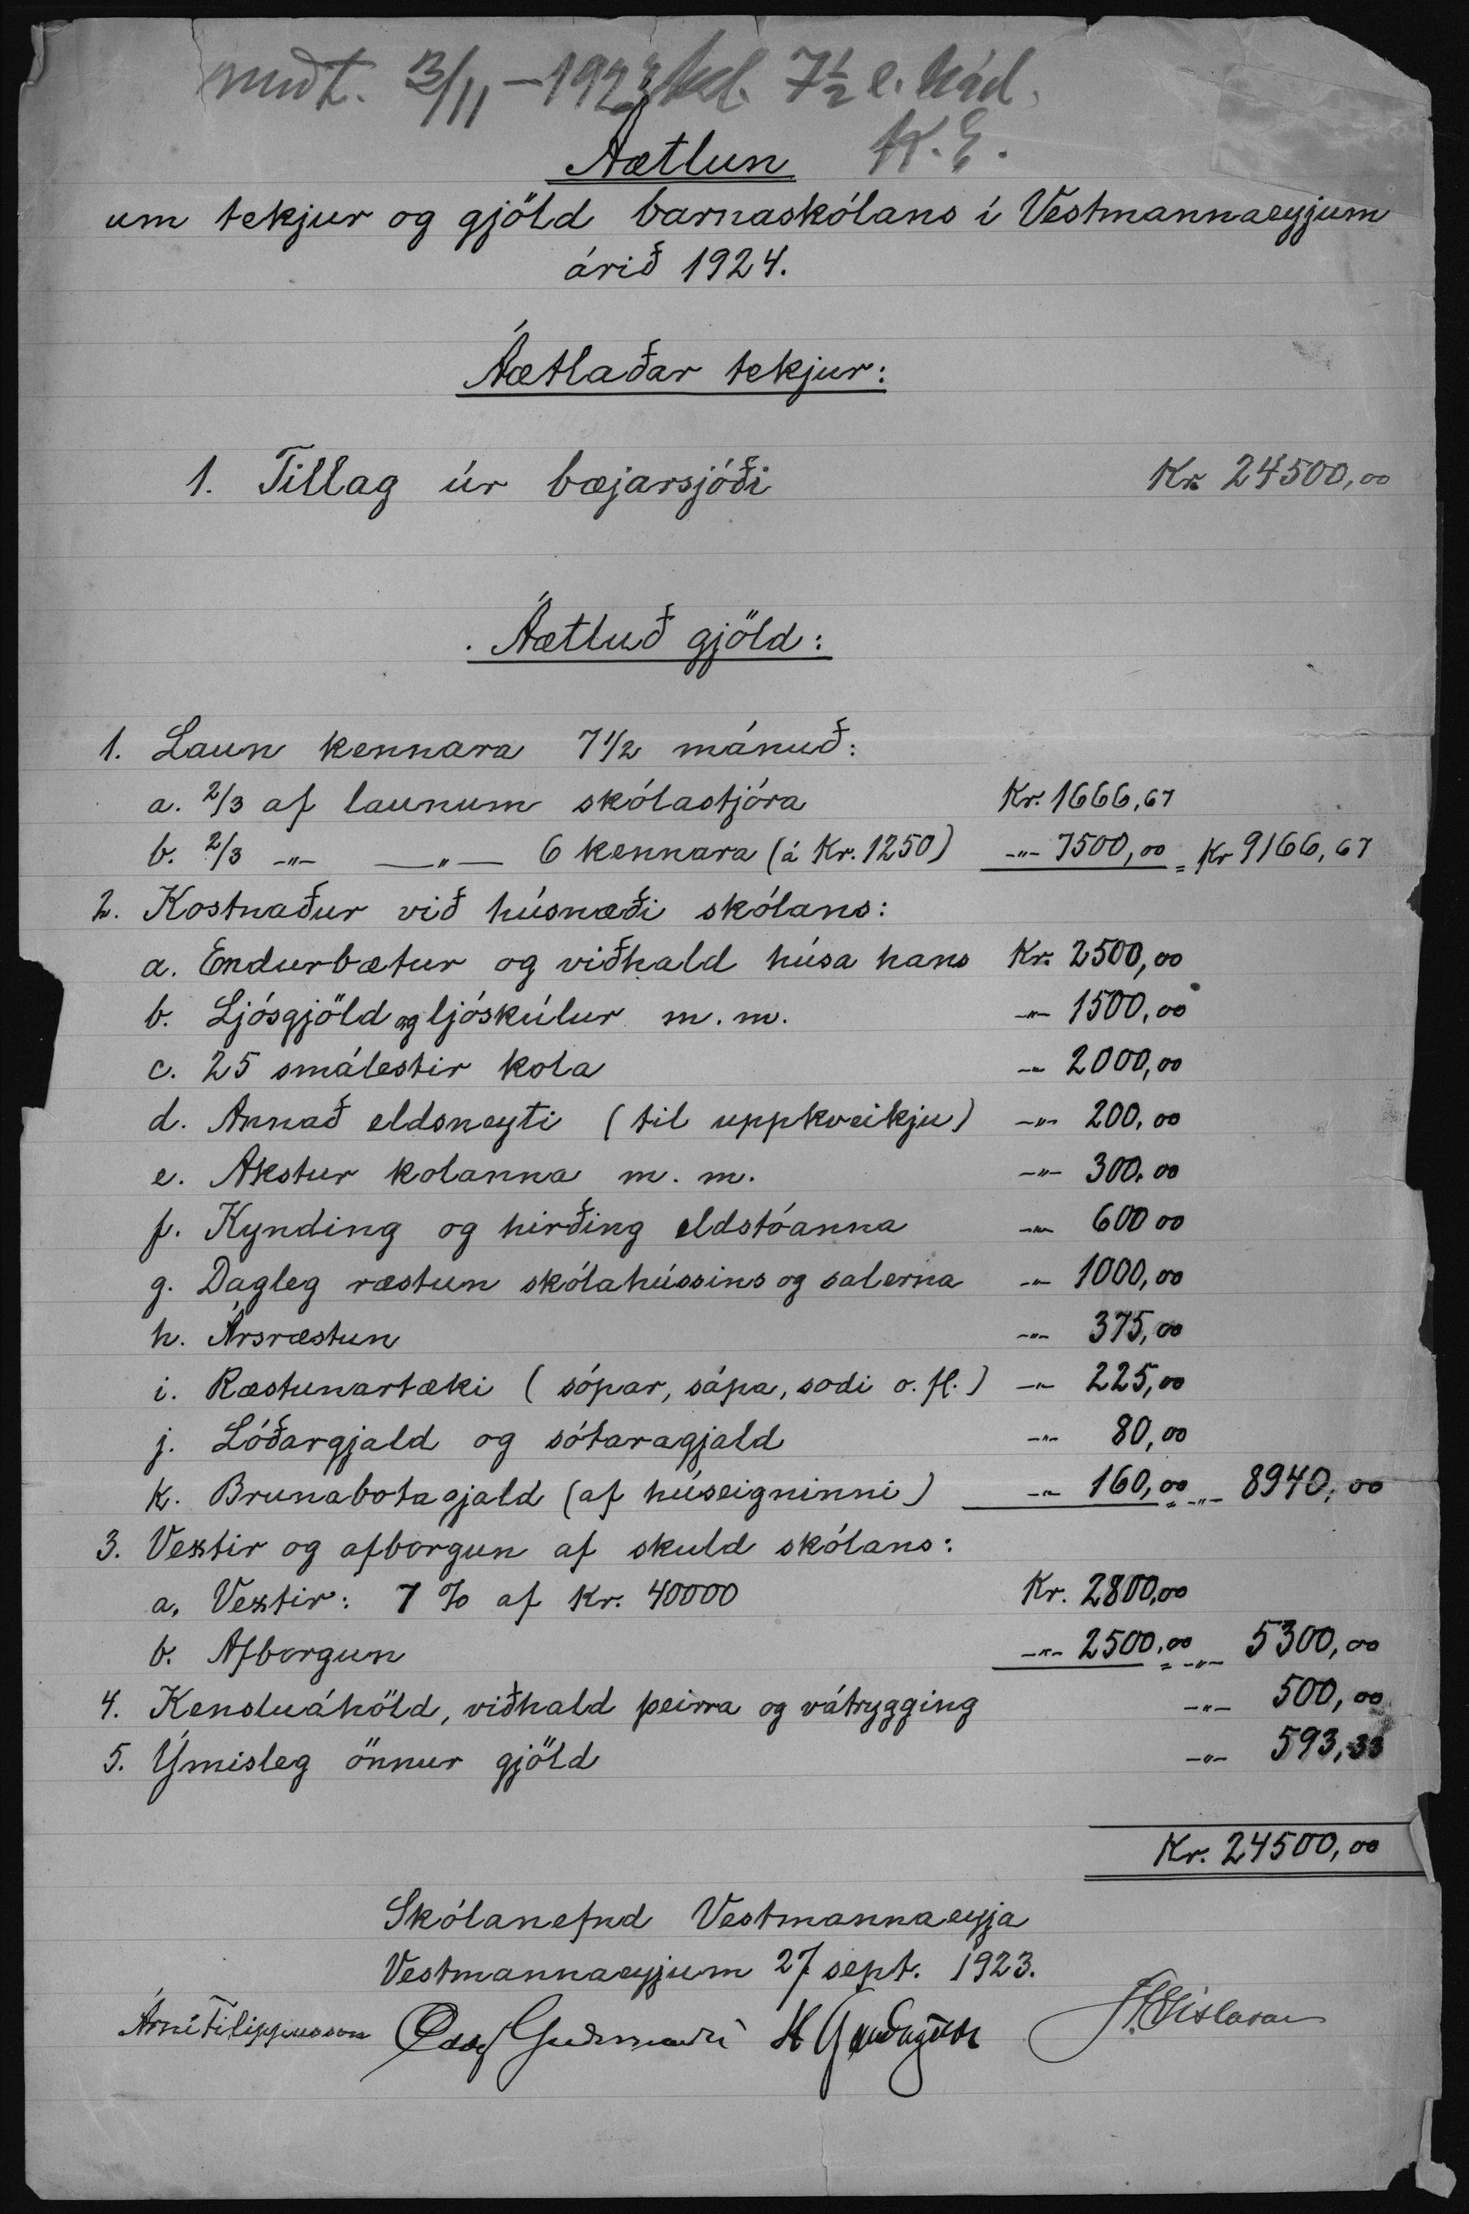 3/11 - 1923 kl. 7½ e. hád.
K. E.
Áætlun
um tekjur og gjöld barnaskólans í Vestmannaeyjum
árið 1924.
Áætlaðar tekjur:
1. Tillag úr bæjarsjóði Kr. 24500,00
Áætluð gjöld:
1. Laun kennara 7 1/2 mánuð:
a. 2/3 af launum skólastjóra Kr. 1666,67
b. 2/3 -"- -"- 6 kennara (á Kr. 1250) -"- 7500,00 = Kr 9166,67
2. Kostnaður við húsnæði skólans:
a. Endurbætur og viðhald húsa hans Kr. 2500,00
b. Ljósgjöld og ljóskúlur m. m. -"- 1500,00
c. 25 smálestir kola -"- 2000,00
d. Annað eldsneyti (til uppkveikju) -"- 200,00
e. Akstur kolanna m. m. -"- 300,00
f. Kynding og hirðing eldstóanna -"- 600 00
g. Dagleg ræstun skólahússins og salerna -"- 1000,00
h. Ársræstun -"- 375,00
i. Ræstunartæki (sópar, sápa, sodi o. fl.) -"- 225,00
j. Lóðargjald og sótaragjald -"- 80,00
k. Brunabotagjald (af húseigninni) -"- 160,00 = -"- 8940,00
3. Vextir og afborgun af skuld skólans:
a. Vextir: 7 % af Kr. 40000 Kr. 2800,00
b. Afborgun -"- 2500,00 = -"- 5300,00
4. Kensluáhöld, viðhald þeirra og vátrygging -"- 500,00
5. Ýmisleg önnur gjöld -"- 593,33
Kr. 24500,00
Skólanefnd Vestmannaeyja
Vestmannaeyjum 27. sept. 1923.
Árni Filippusson